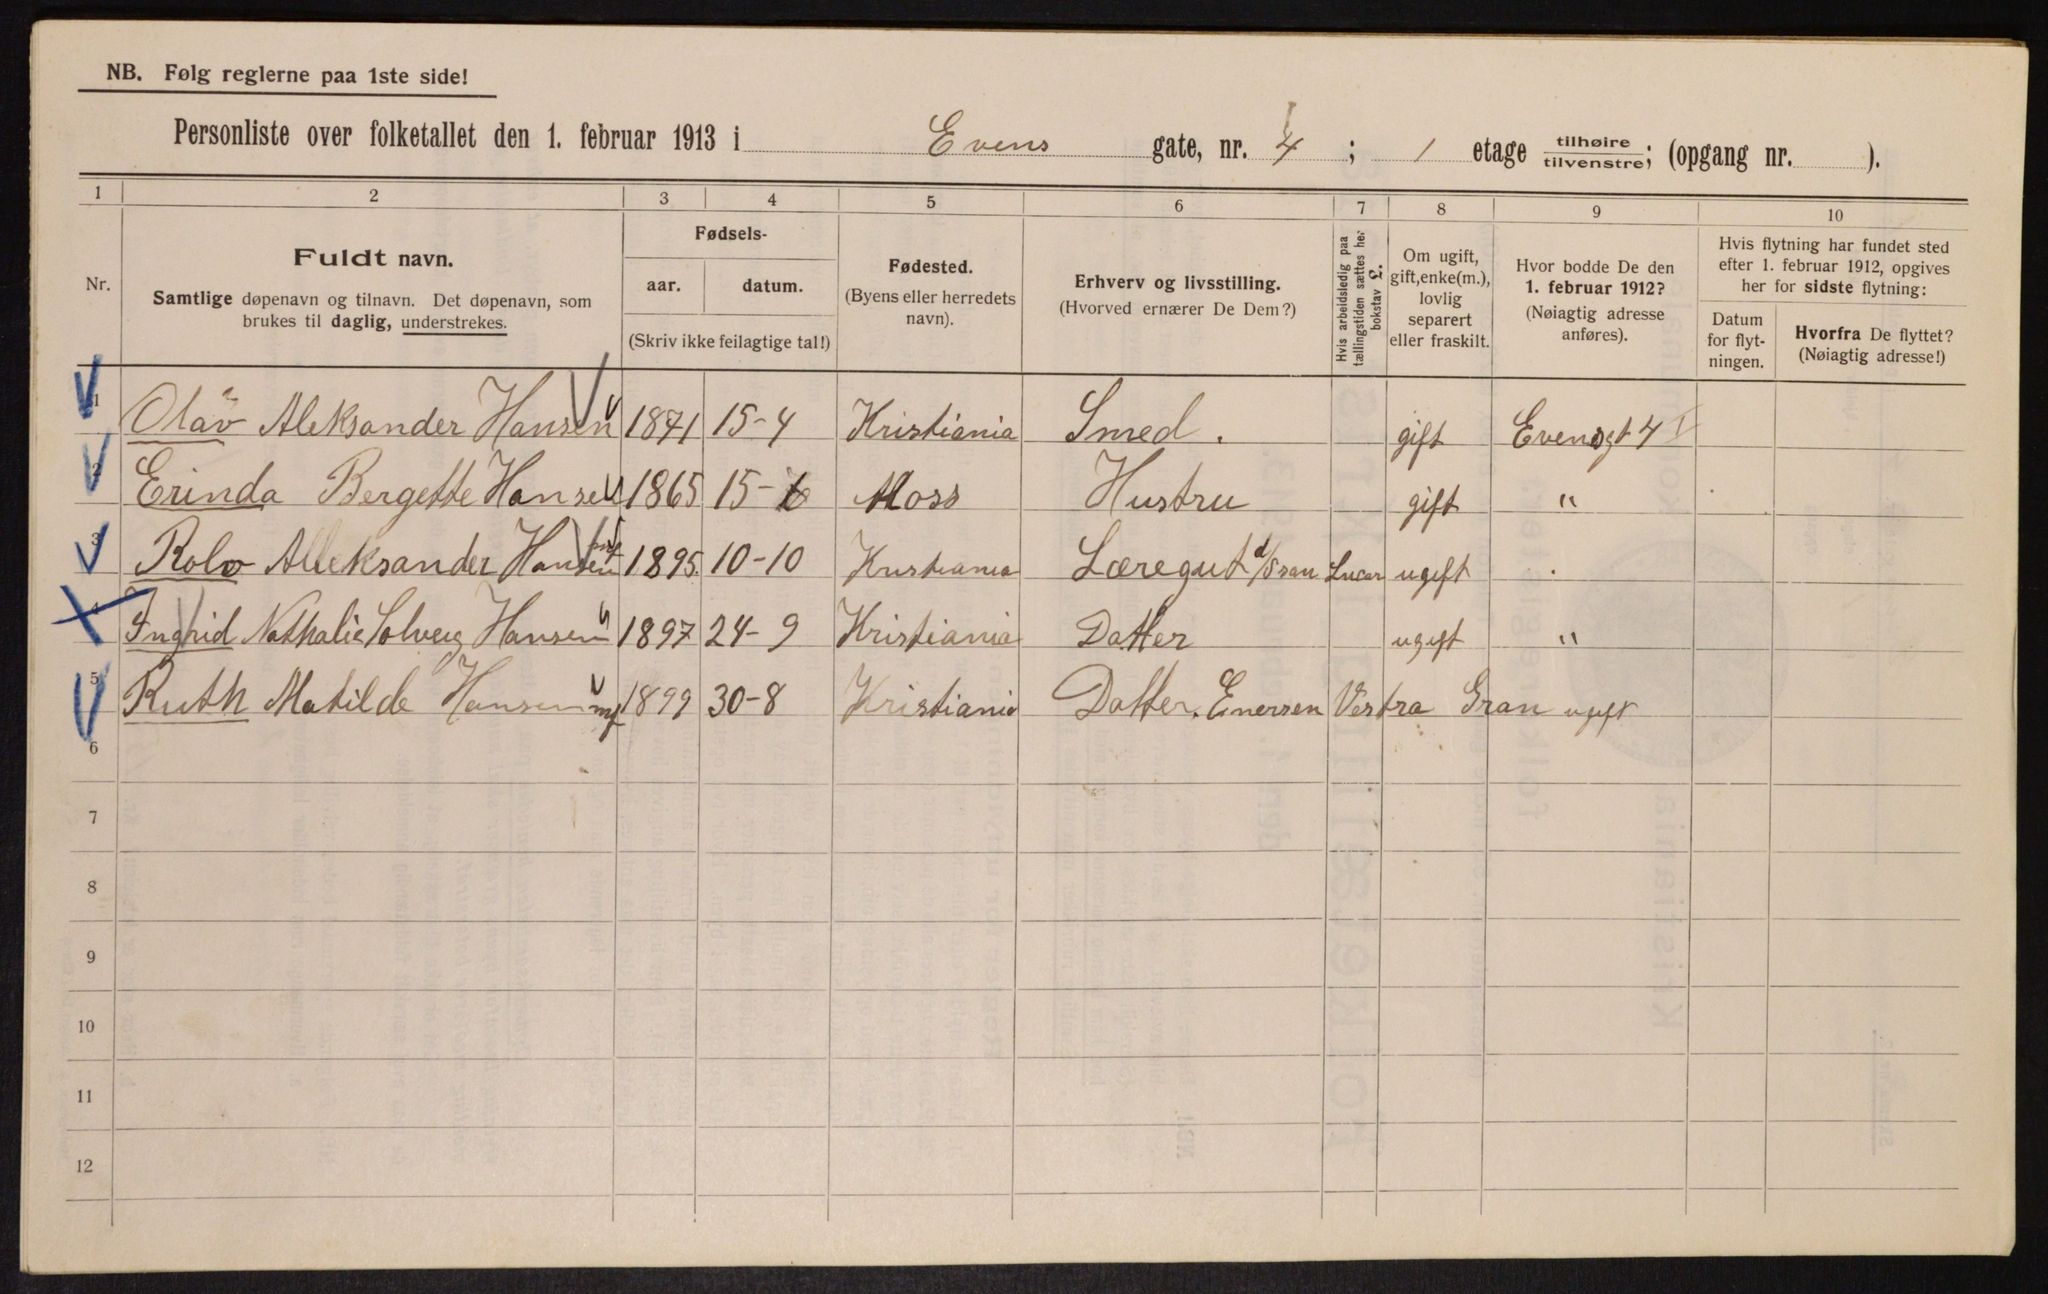 NB. Følg reglerne paa 1ste side!
Personliste over folketallet den 1. februar 1913 i Evens gate, nr. 4 ; 1 etage tilhøire/tilvenstre; (opgang nr. ).
1 2 3 4 5 6 7 8 9 10
Nr.
Fuldt navn.
Samtlige døpenavn og tilnavn. Det døpenavn, som
brukes til daglig, understrekes.
Fødsels-
aar. datum.
(Skriv ikke feilagtige tal!)
Fødested.
(Byens eller herredets
navn).
Erhverv og livsstilling.
(Hvorved ernærer De Dem?)
Hvis arbeidsledig paa
tællingstiden sættes her
bokstav L.
Om ugift,
gift, enke(m.),
lovlig
separert
eller fraskilt.
Hvor bodde De den
1. februar 1912?
(Nøiagtig adresse
anføres).
Hvis flytning har fundet sted
efter 1. februar 1912, opgives
her for sidste flytning:
Datum
for flyt-
ningen.
Hvorfra De flyttet?
(Nøiagtig adresse!)
1 Olav Aleksander Hansen 1871 15-4 Kristiania Smed. gift Evensgt 4 I
2 Erinda Bergette Hansen 1865 15-6 Moss Hustru gift "
3 Rolv Alleksander Hansen 1895 10-10 Kristiania Læregut ugift
4 Ingrid Nathalie Solveig Hansen 1897 24-9 Kristiania Datter ugift "
5 Ruth Matilde Hansen 1899 30-8 Kristiania Datter. Enersen Vestra Gran ugift
6
7
8
9
10
11
12